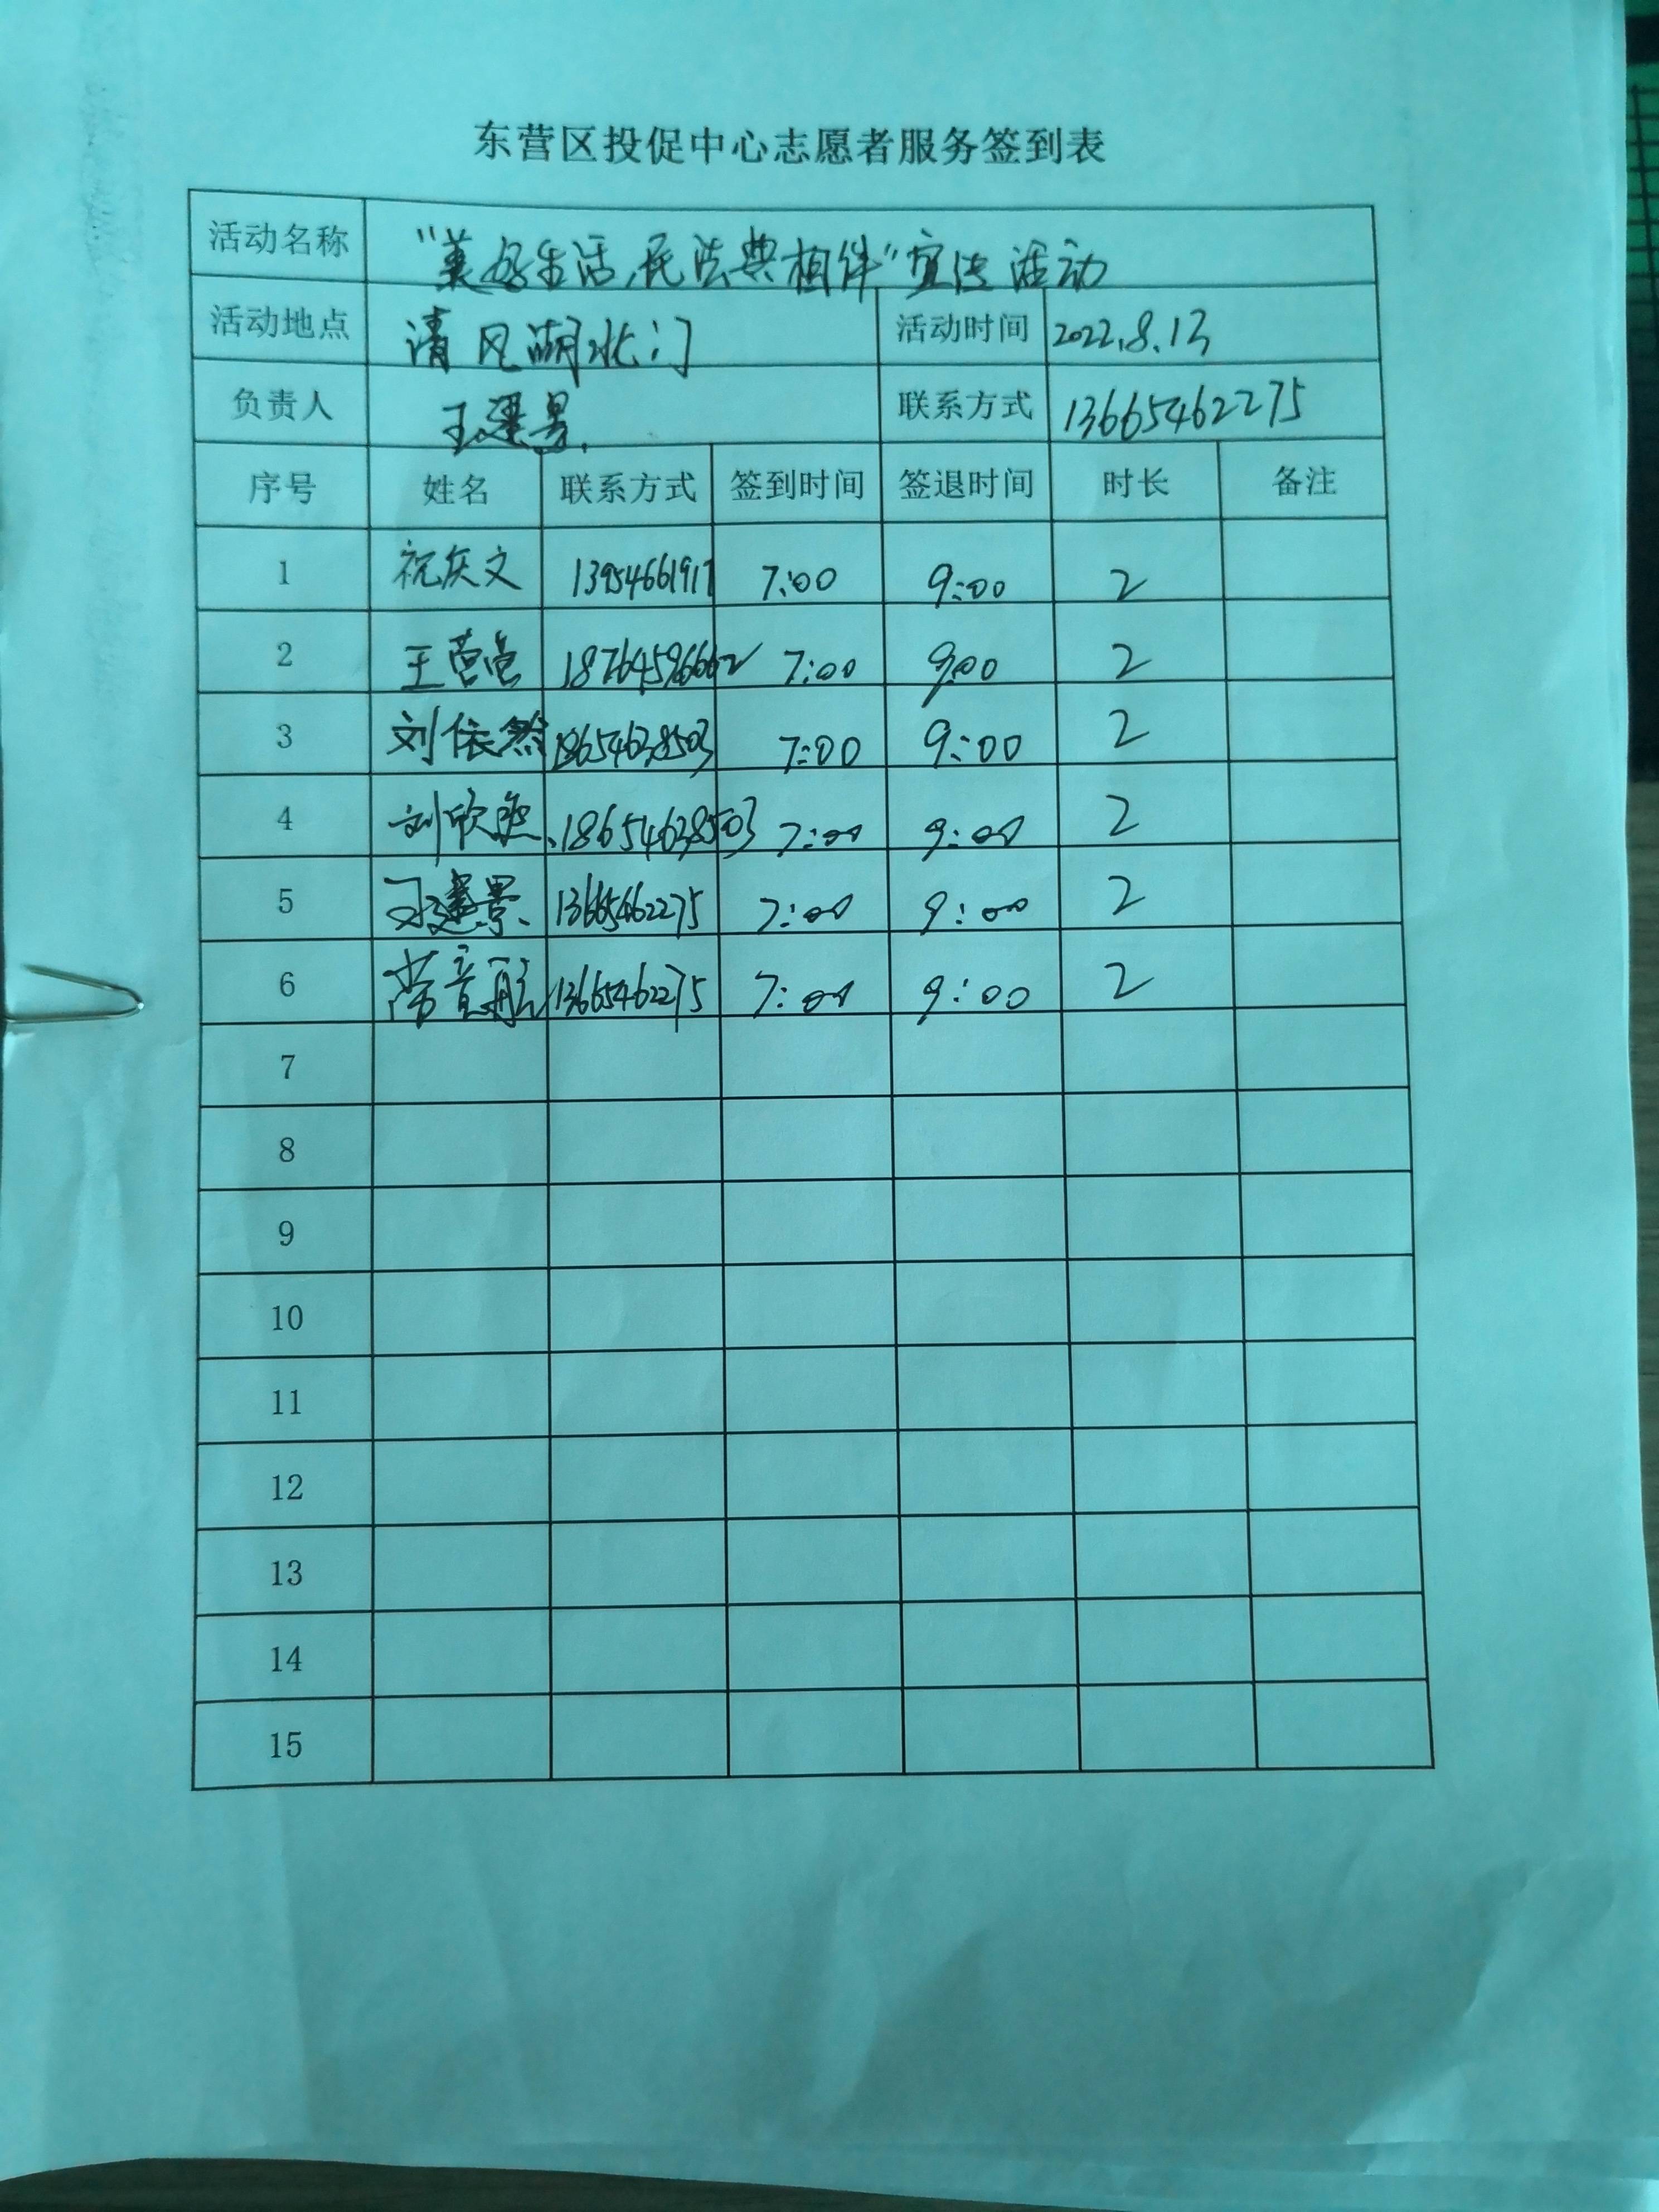 东营区投促中心志愿者服务签到表
活动名称 "美好生活,民法典相伴"宣传活动
活动地点 清风湖北门 活动时间 2022.8.13
负责人 王建景 联系方式 13665462275
序号 姓名 联系方式 签到时间 签退时间 时长 备注
1 祝庆文 13954661917 7:00 9:00 2
2 王营营 18764596662 7:00 9:00 2
3 刘依然 18654638503 7:00 9:00 2
4 刘欣然 18654638503 7:00 9:00 2
5 王建景 13665462275 7:00 9:00 2
6 常音航 13665462275 7:00 9:00 2
7
8
9
10
11
12
13
14
15